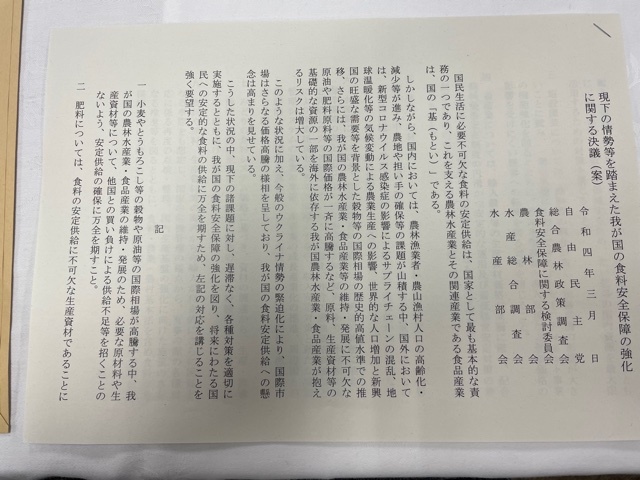 現下の情勢等を踏まえた我が国の食料安全保障の強化
に関する決議（案）
令和四年三月　日
自由民主党
総合農林政策調査会
食料安全保障に関する検討委員会
農林部会
水産総合調査会
水産部会
国民生活に必要不可欠な食料の安定供給は、国家として最も基本的な責
務の一つであり、これを支える農林水産業とその関連産業である食品産業
は、国の「基（もとい）」である。
しかしながら、国内においては、農林漁業者・農山漁村人口の高齢化・
減少等が進み、農地や担い手の確保等の課題が山積する中、国外において
は、新型コロナウイルス感染症の影響によるサプライチェーンの混乱、地
球温暖化等の気候変動による農業生産への影響、世界的な人口増加と新興
国の旺盛な需要等を背景とした穀物等の国際相場の歴史的高値水準での推
移、さらには、我が国の農林水産業・食品産業等の維持・発展に不可欠な
原油や肥料原料等の国際価格が一斉に高騰するなど、原料、生産資材等の
基礎的な資源の一部を海外に依存する我が国農林水産業・食品産業が抱え
るリスクは増大している。
このような状況に加え、今般のウクライナ情勢の緊迫化により、国際市
場はさらなる価格高騰の様相を呈しており、我が国の食料安定供給への懸
念は高まりを見せている。
こうした状況の中、現下の諸課題に対し、遅滞なく、各種対策を適切に
実施するとともに、我が国の食料安全保障の強化を図り、将来にわたる国
民への安定的な食料の供給に万全を期すため、左記の対応を講じることを
強く要望する。
記
一　小麦やとうもろこし等の穀物や原油等の国際相場が高騰する中、我
が国の農林水産業・食品産業の維持・発展のため、必要な原材料や生
産資材等について、他国との買い負けによる供給不足等を招くことの
ないよう、安定供給の確保に万全を期すこと。
二　肥料については、食料の安定供給に不可欠な生産資材であることに